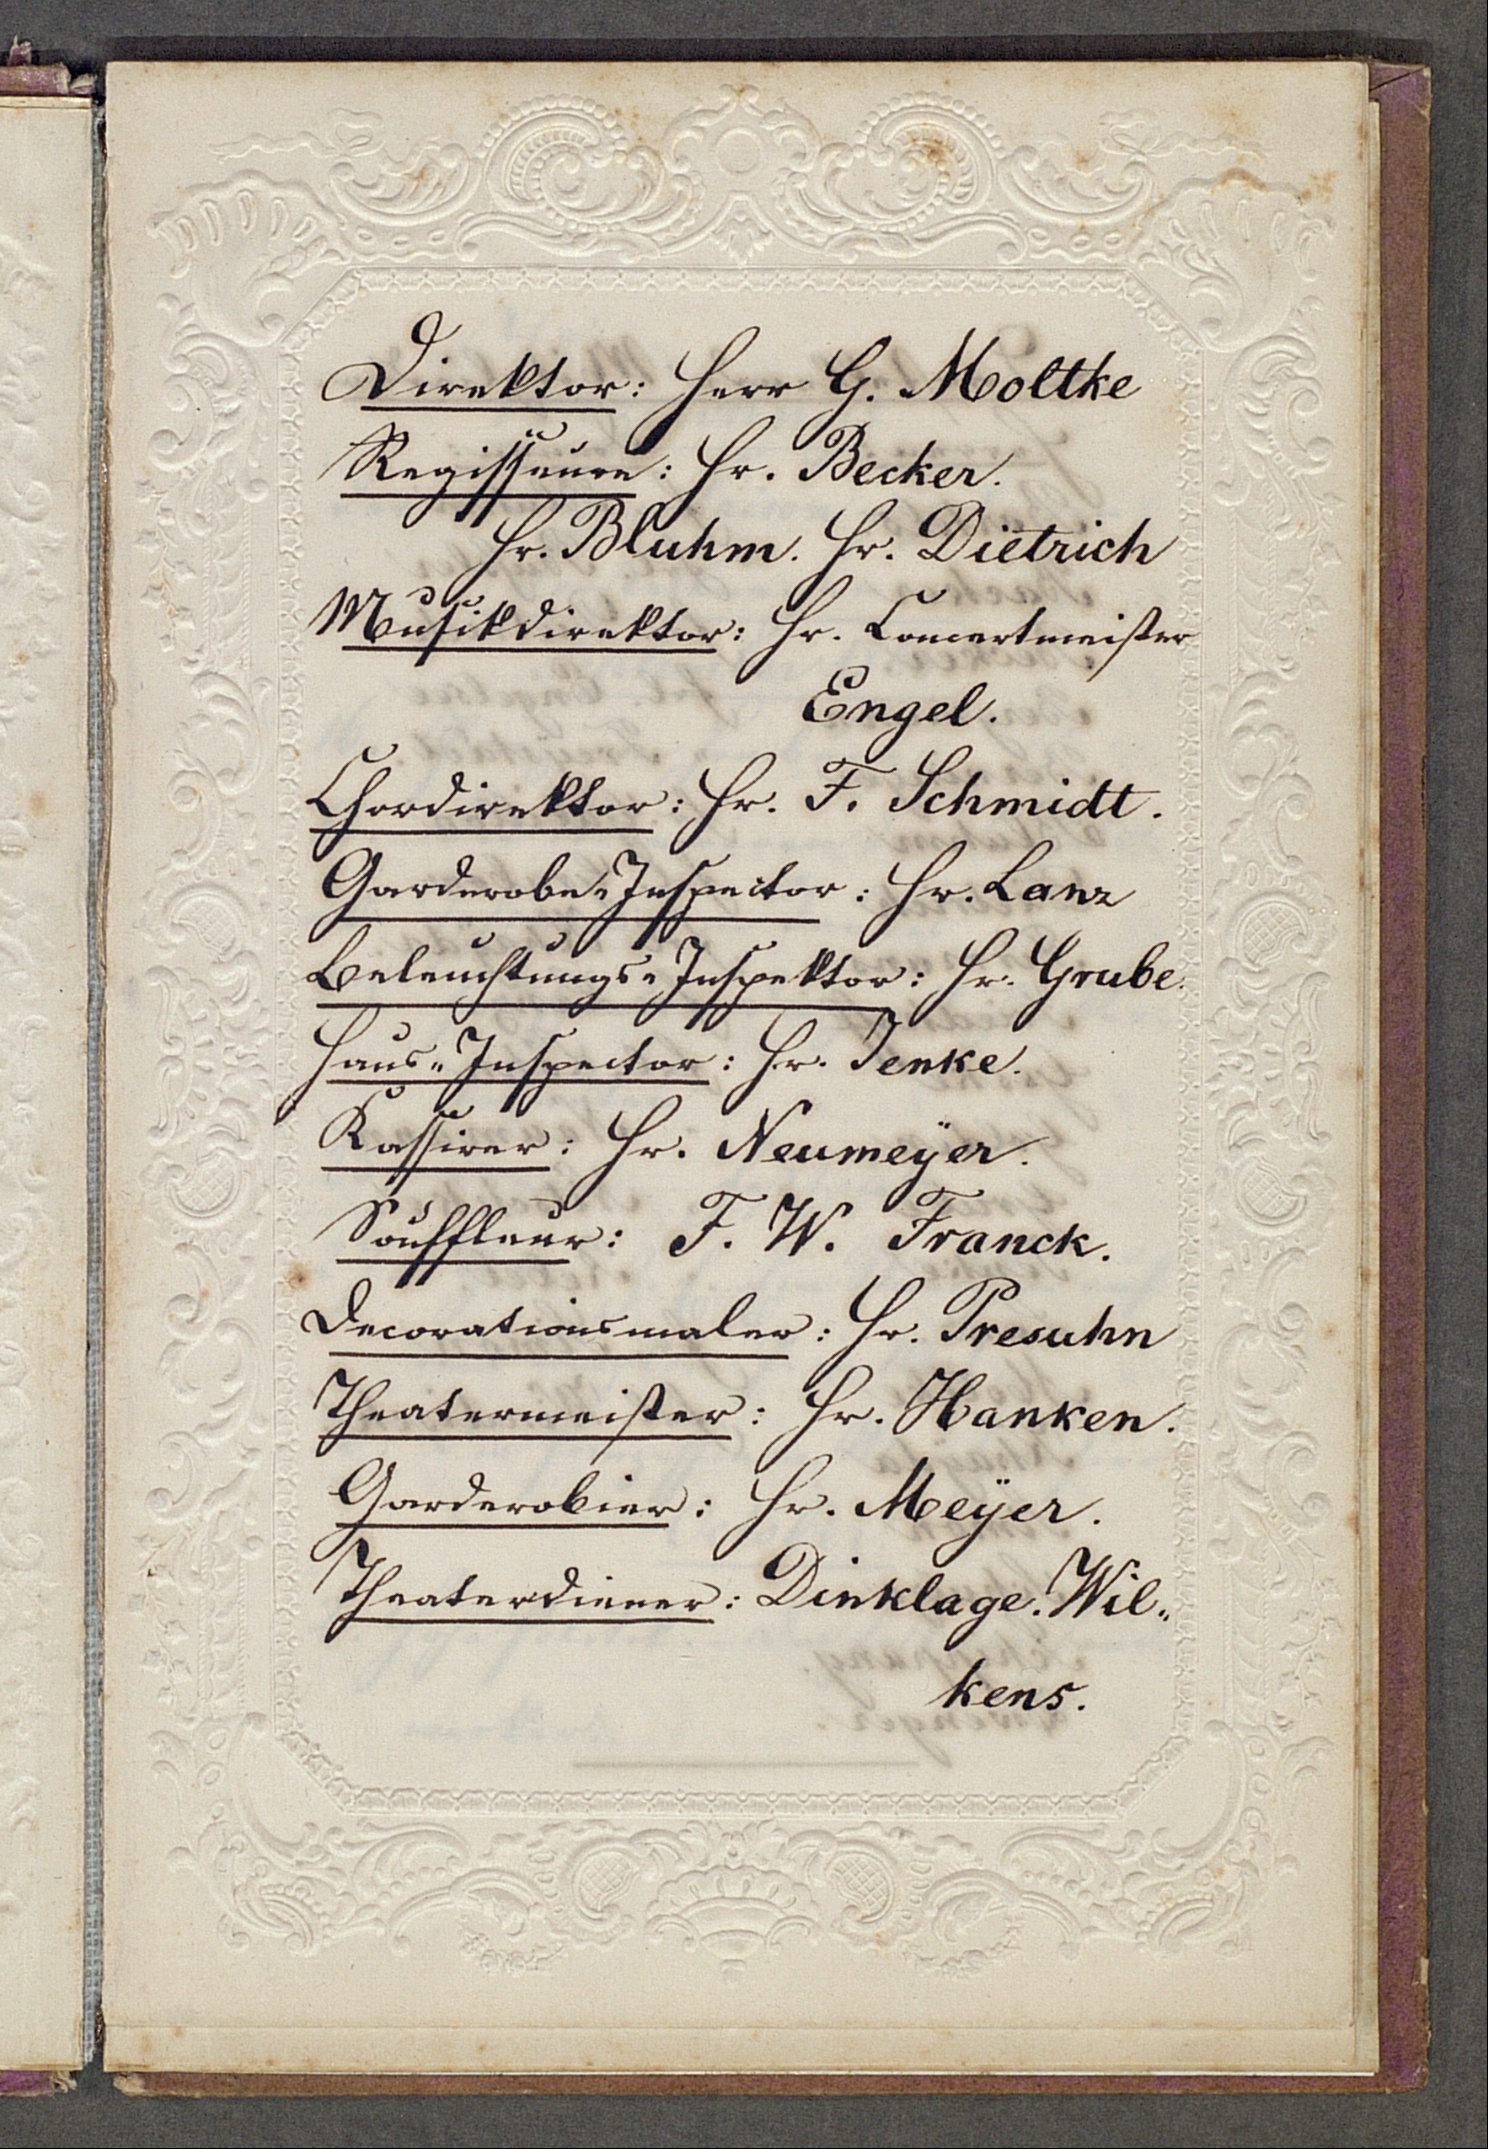 Direktor: Herr G. Moltke
Regisseure: Hr. Becker.
Hr. Bluhm. Hr. Dietrich
Musikdirektor: Hr. Concertmeister
Engel.
Chordirektor: Hr. F. Schmidt.
Garderobe-Inspector: Hr. Lanz
Beleuchtungs-Inspektor: Hr. Grube.
Haus-Inspector: Hr. Jenke.
Kassirer: Hr. Neumeÿer.
Souffleur: F. W. Franck.
Decorationsmaler: Hr. Presuhn
Theatermeister: Hr. Hanken.
Garderobier: Hr. Meÿer.
Theaterdiener: Dinklage. Wil-
kens.